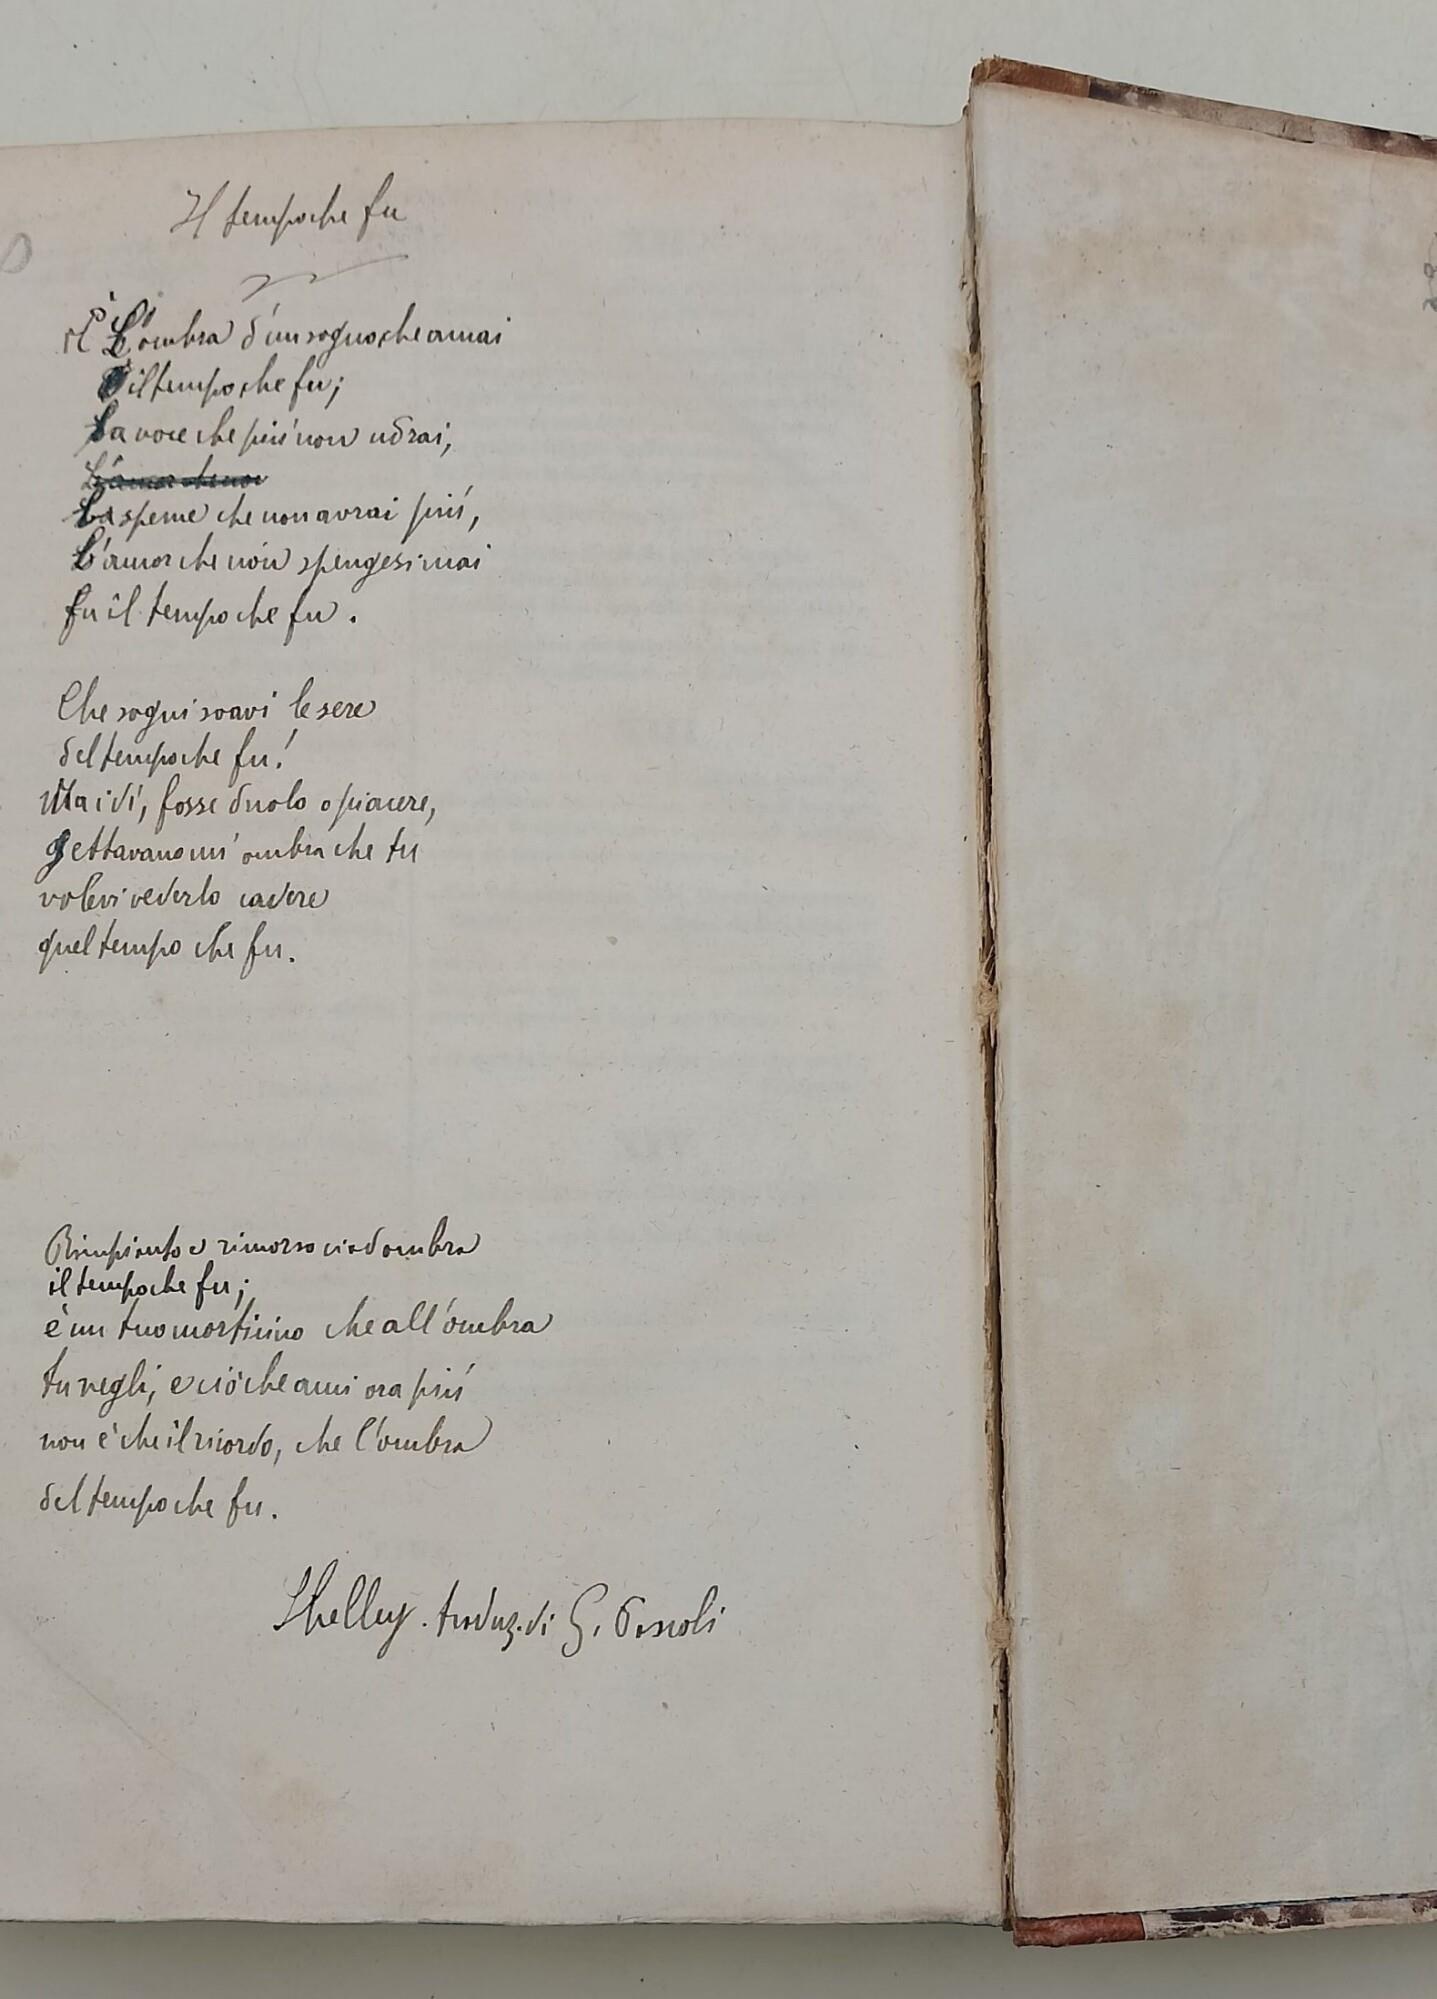 Il tempo che fu
È L'ombra d'un sogno che amai
il tempo che fu;
La voce che più non udrai,
L'amor che non
La speme che non avrai più,
L'amor che non spengesi mai
fu il tempo che fu.
Che sogni soavi le sere
del tempo che fu!
Ma i dì, fosse duolo o piacere,
gettavano un'ombra che tu
volevi vederlo cadere
quel tempo che fu.
Rimpianto e rimorso ci adombra
il tempo che fu;
è un tuo morticino che all'ombra
tu vegli, e ciò che ami ora più
non è che il ricordo, che l'ombra
del tempo che fu.
Shelley. traduz. di G. Pascoli